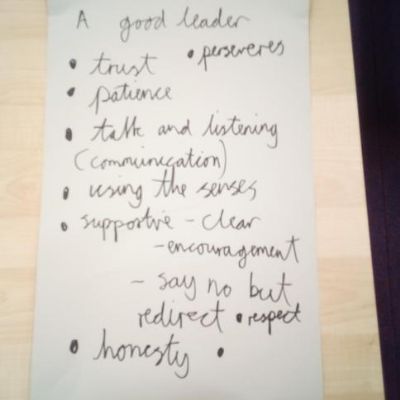 A good leader
• trust • perseveres
• patience
• talk and listening
(communication)
• using the senses
• supportive - clear
- encouragement
- say no but
redirect • respect
• honesty •